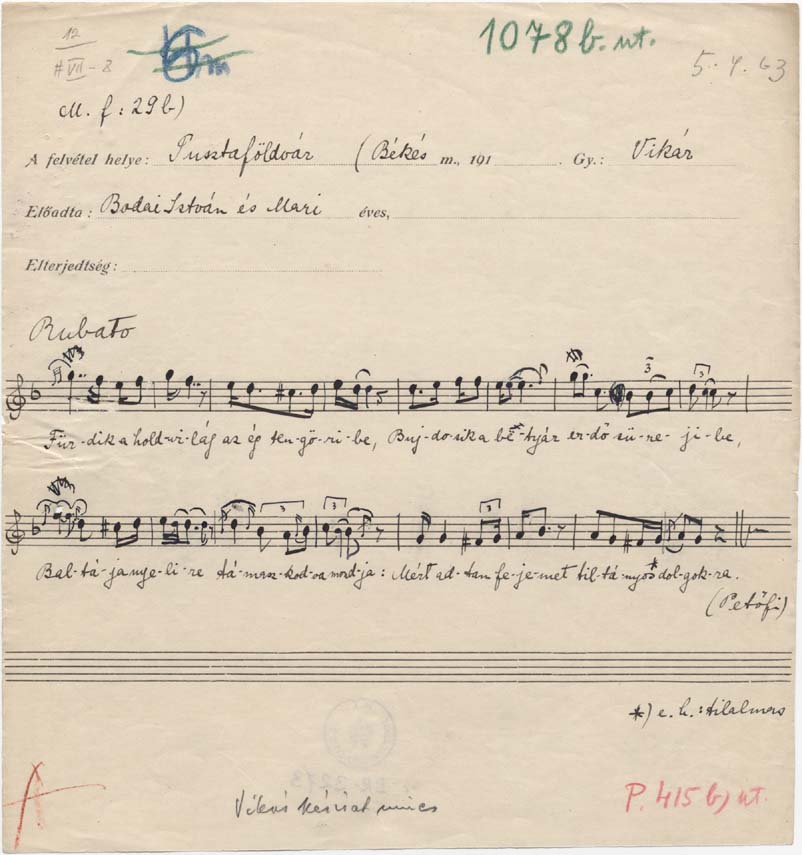 12
# VII - 8
1078 b. ut.
5. 4. 63
M. f: 29 b)
A felvétel helye: Pusztaföldvár (Békés m., 191 . Gy.: Vikár
Előadta: Bodai István és Mari éves,
Elterjedtség:
Rubato
Für-dik a hold-vi-lág az ég ten-gö-ri-be, Buj-do-sik a be-tyár er-dő sü-re-ji-be,
Bal-tá-ja nye-li-re tá-masz-kod-va mond-ja: Mért ad-tan fe-je-met til-tá-nyos* dol-gok-ra.
(Petőfi)
*) e. h.: tilalmas
Vikár kézirat nincs
P. 415 b) ut.